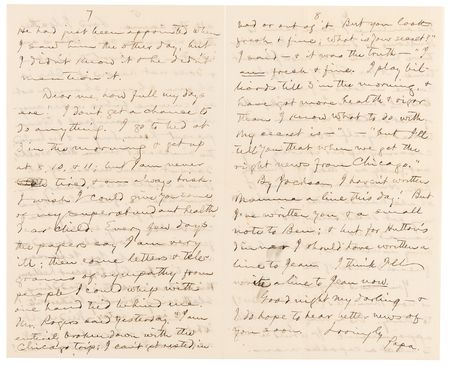 7
He had just been appointed when
I saw him the other day, but
I didn't know it & he didn't
mention it.
Dear me, how full my days
are! I don't get a chance to
do anything. I go to bed at
3 in the morning & get up
at 8, 10, & 11; but I am never
tired, & am always fresh.
I wish I could give you some
of my superabundant health
dear child. Every few days
the papers say I am very
ill; then come letters & tele-
grams of sympathy from
people I could whip with
one hand tied behind me.
Mr. Rogers said yesterday "I am
entirely broken down with the
Chicago trip; I can't get rested, in
8
bed or out of it. But you look
fresh & fine, what is your secret?"
I said — & it was the truth — "I
am fresh & fine. I play bil-
liards till 3 in the morning, &
have got more health & vigor
than I know what to do with.
My secret is — " — "but I'll
tell you that when we get the
right news from Chicago."
By Jackson, I haven't written
Mamma a line this day. But
I've written you, & a small
note to Ben; & but for Hutton's
dinner I should have written a
line to Jean. I think I'll
write a line to Jean now.
Good night my darling — &
I do hope to hear better news of
you soon. Lovingly
Papa.